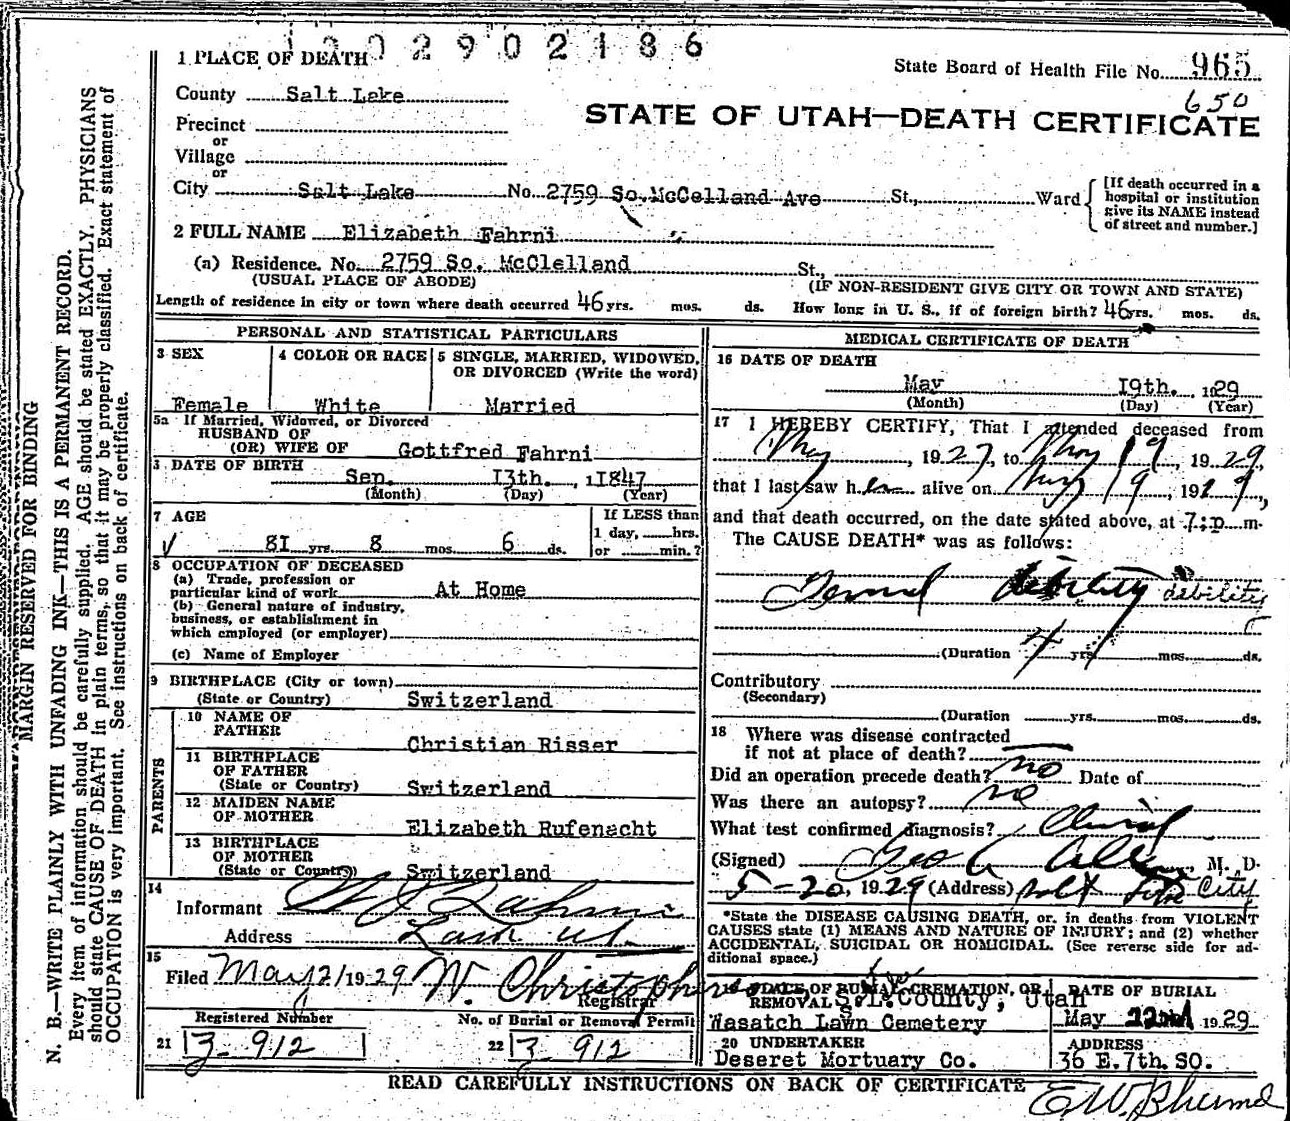 1302902186
1 PLACE OF DEATH
State Board of Health File No. 965
650
County Salt Lake
STATE OF UTAH—DEATH CERTIFICATE
Precinct
or
Village
or
City Salt Lake No. 2759 So.McCelland Ave St., Ward
[If death occurred in a
hospital or institution
give its NAME instead
of street and number.]
2 FULL NAME Elizabeth Fahrni
(a) Residence. No. 2759 So. McClelland St.,
(USUAL PLACE OF ABODE) (IF NON-RESIDENT GIVE CITY OR TOWN AND STATE)
Length of residence in city or town where death occurred 46 yrs. mos. ds. How long in U. S., if of foreign birth? 46 yrs. mos. ds.
PERSONAL AND STATISTICAL PARTICULARS
3 SEX 4 COLOR OR RACE 5 SINGLE, MARRIED, WIDOWED,
OR DIVORCED (Write the word)
Female White Married
5a If Married, Widowed, or Divorced
HUSBAND OF
(OR) WIFE OF Gottfred Fahrni
DATE OF BIRTH
Sep. 13th. , 11847
(Month) (Day) (Year)
7 AGE
81 yrs. 8 mos. 6 ds.
If LESS than
1 day, hrs.
or min.?
8 OCCUPATION OF DECEASED
(a) Trade, profession or
particular kind of work At Home
(b) General nature of industry,
business, or establishment in
which employed (or employer)
(c) Name of Employer
9 BIRTHPLACE (City or town)
(State or Country) Switzerland
PARENTS
10 NAME OF
FATHER Christian Risser
11 BIRTHPLACE
OF FATHER
(State or Country) Switzerland
12 MAIDEN NAME
OF MOTHER Elizabeth Rufenacht
13 BIRTHPLACE
OF MOTHER
(State or Country) Switzerland
14
Informant Fahrni
Address
15
Filed May 21 1929 W. Christopherson
Registrar
Registered Number No. of Burial or Removal Permit
21 3-912 22 3-912
MEDICAL CERTIFICATE OF DEATH
16 DATE OF DEATH
May 19th. , 1929
(Month) (Day) (Year)
17 I HEREBY CERTIFY, That I attended deceased from
May , 1927, to May 19, 1929,
that I last saw her alive on May 19, 1929,
and that death occurred, on the date stated above, at 7:p m.
The CAUSE DEATH* was as follows:
debility debility
(Duration 4 yrs. mos. ds.
Contributory
(Secondary)
(Duration yrs. mos. ds.
18 Where was disease contracted
if not at place of death?
Did an operation precede death? no Date of
Was there an autopsy? no
What test confirmed diagnosis? Clinical
(Signed) Geo M. D.
5-20, 1929 (Address) Salt Lake City
*State the DISEASE CAUSING DEATH, or, in deaths from VIOLENT
CAUSES state (1) MEANS AND NATURE OF INJURY; and (2) whether
ACCIDENTAL, SUICIDAL OR HOMICIDAL. (See reverse side for ad-
ditional space.)
19 PLACE OF BURIAL, CREMATION, OR
REMOVAL S.L. County, Utah
Wasatch Lawn Cemetery
DATE OF BURIAL
May 22nd 1929
20 UNDERTAKER
Deseret Mortuary Co.
ADDRESS
36 E. 7th. SO.
READ CAREFULLY INSTRUCTIONS ON BACK OF CERTIFICATE
MARGIN RESERVED FOR BINDING
N. B.—WRITE PLAINLY WITH UNFADING INK—THIS IS A PERMANENT RECORD.
Every item of information should be carefully supplied. AGE should be stated EXACTLY. PHYSICIANS
should state CAUSE OF DEATH in plain terms, so that it may be properly classified. Exact statement of
OCCUPATION is very important. See instructions on back of certificate.